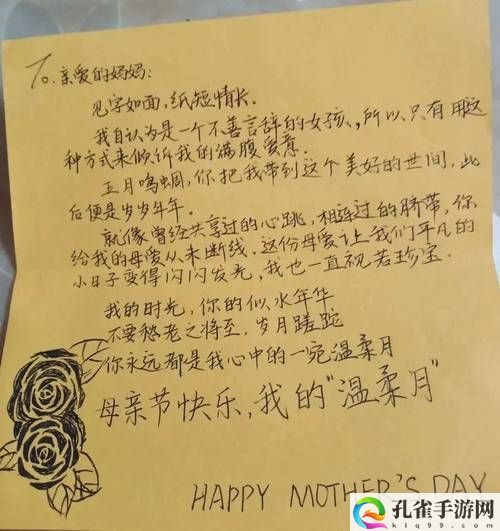 To. 亲爱的妈妈:
见字如面,纸短情长。
我自认为是一个不善言辞的女孩、所以、只有用这
种方式来倾诉我的满腹爱意.
五月鸣蜩,你把我带到这个美好的世间,此
后便是岁岁年年.
就像曾经共享过的心跳,相连过的脐带,你
给我的母爱从未断线.这份母爱让我们平凡的
小日子变得闪闪发光,我也一直视若珍宝.
我的时光,你的似水年华
不要愁老之将至,岁月蹉跎
你永远都是我心中的一宛温柔月
母亲节快乐,我的"温柔月"
HAPPY MOTHER'S DAY
孔雀手游网
klq999.com